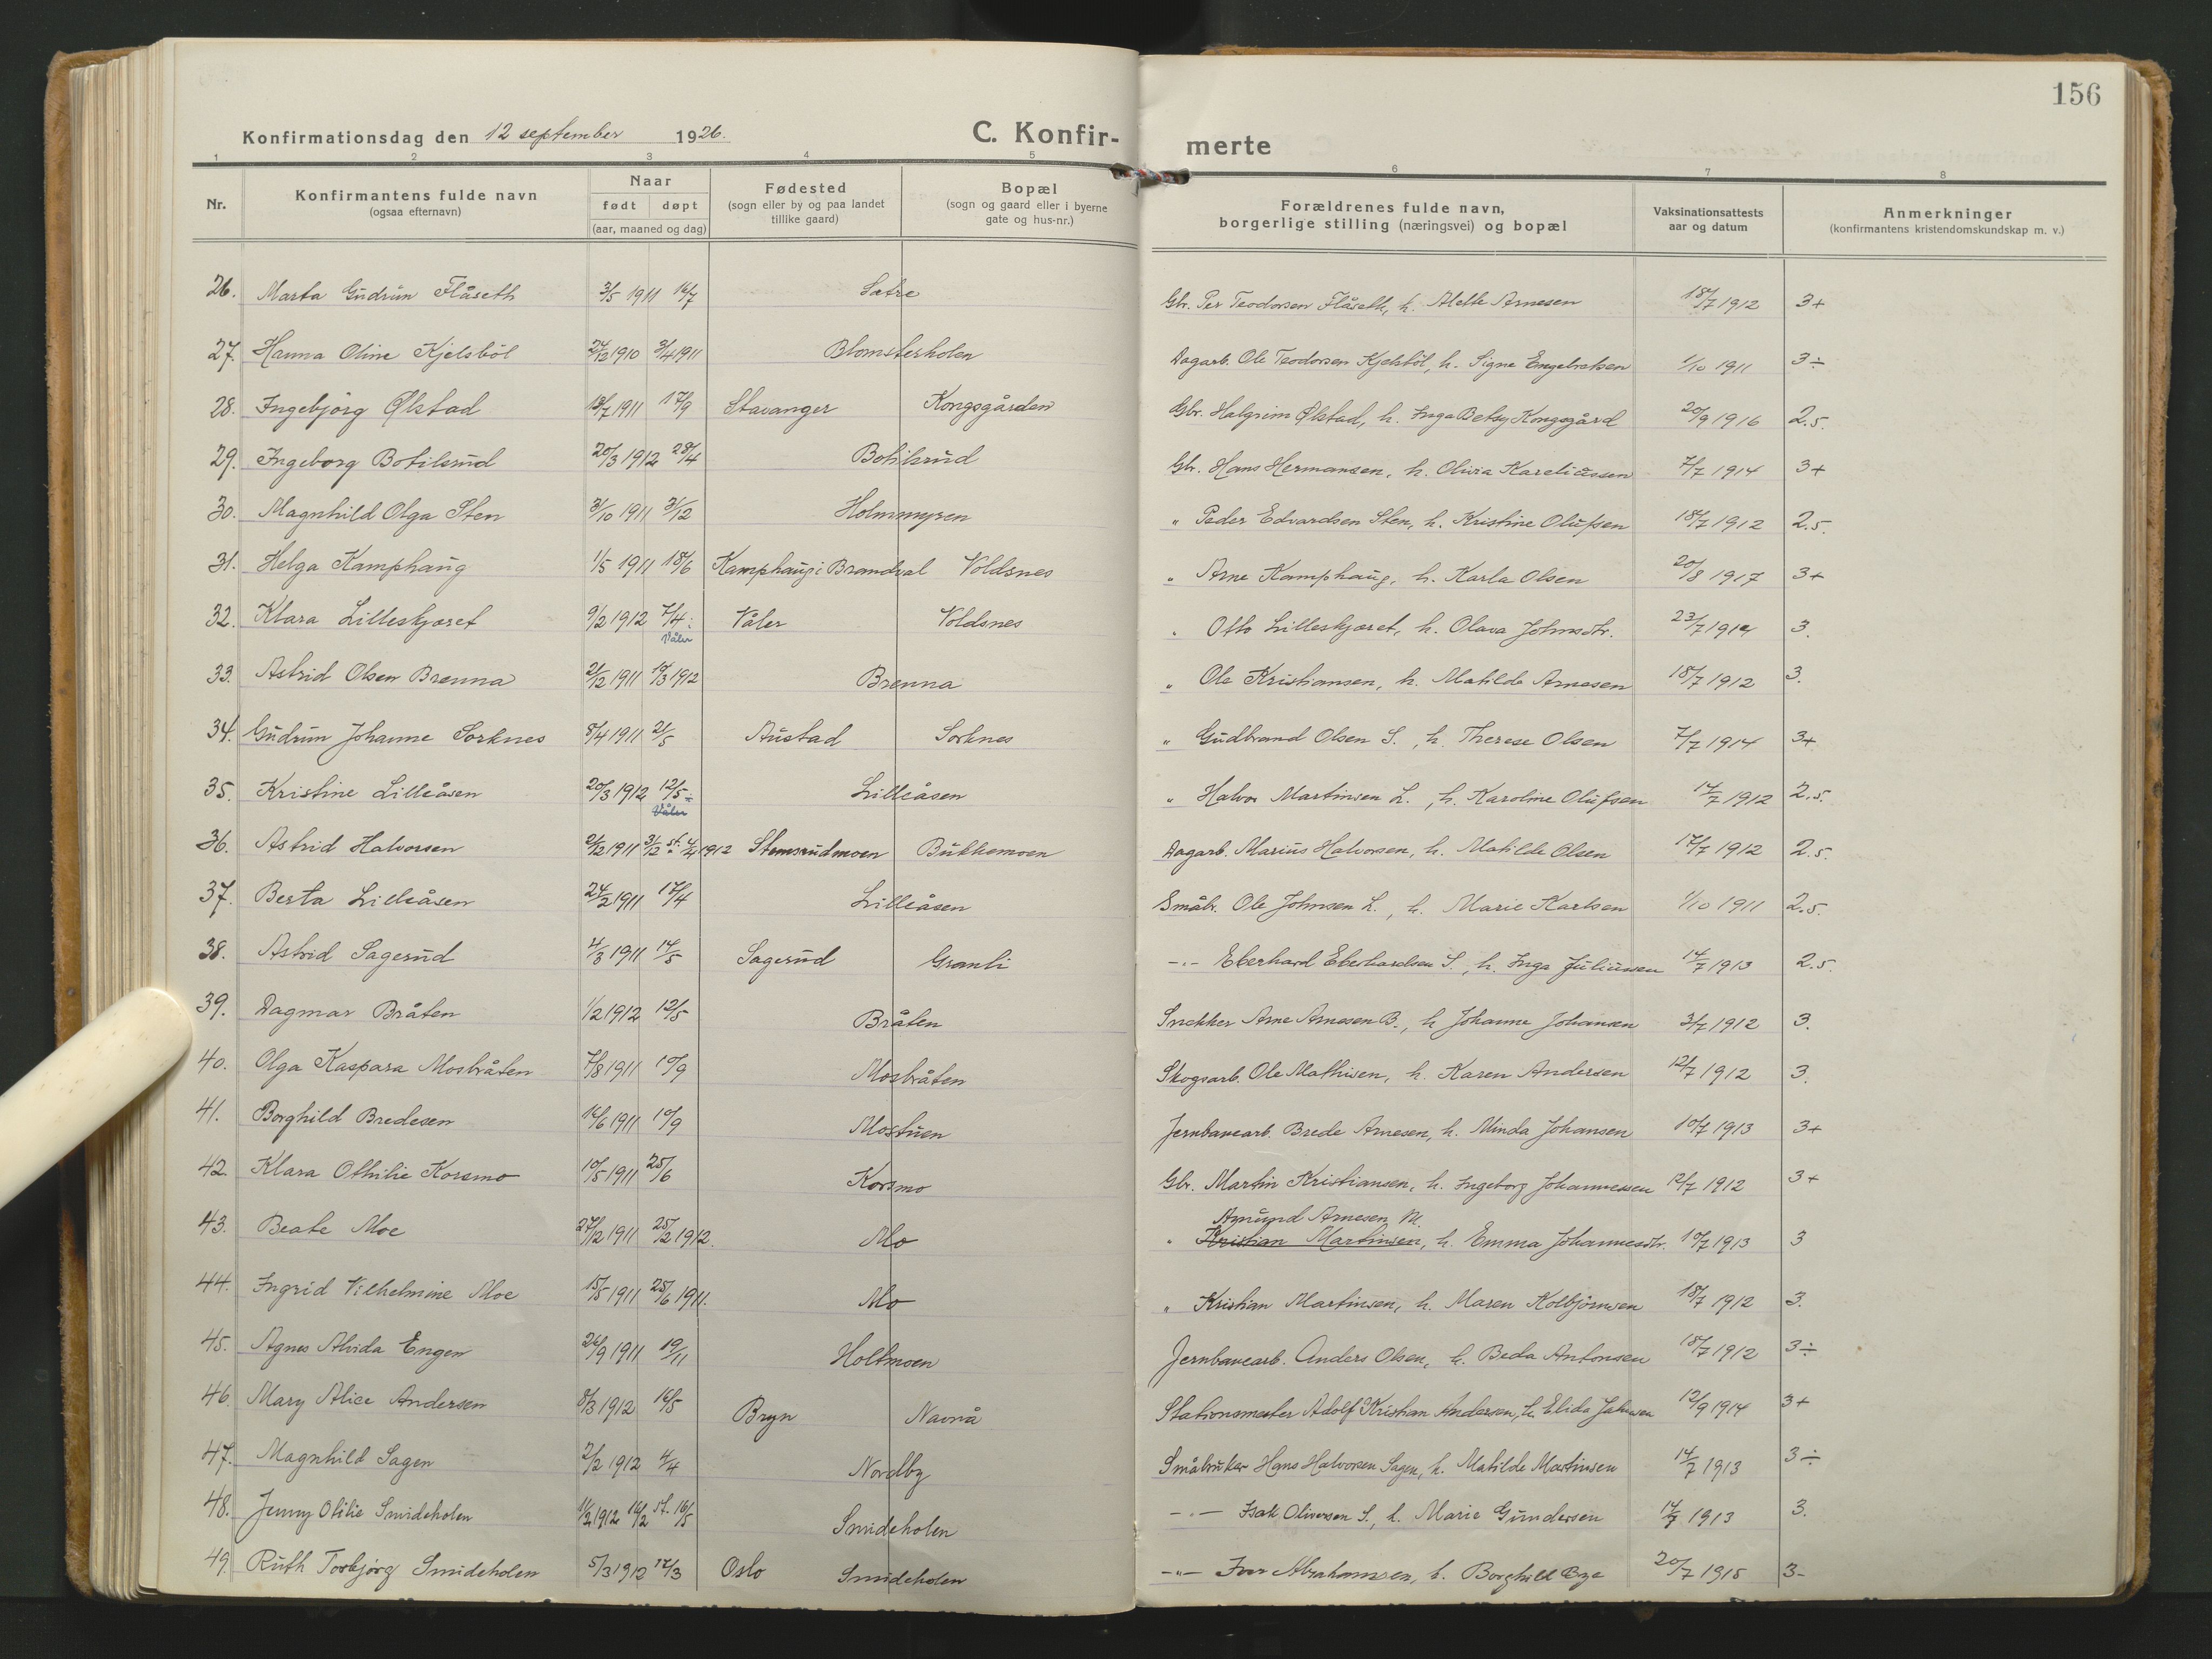 156
Konfirmationsdag den 12 september 1926.
C. Konfir-merte
1 2 3 4 5 6 7 8
Nr. Konfirmantens fulde navn (ogsaa efternavn) Naar født døpt (aar, maaned og dag) Fødested (sogn eller by og paa landet tillike gaard) Bopæl (sogn og gaard eller i byerne gate og hus-nr.) Forældrenes fulde navn, borgerlige stilling (næringsvei) og bopæl Vaksinationsattests aar og datum Anmerkninger (konfirmantens kristendomskundskap m. v.)
26. Marta Gudrun Flåseth 3/5 1911 16/7 Sætre Gbr. Per Teodorsen Flåseth, h. Alette Arnesen 18/7 1912 3+
27. Hanna Oline Kjelsböl 24/12 1910 3/4 1911 Blomsterholen Dagarb. Ole Teodorsen Kjelsböl, h. Signe Engebretsen 1/10 1911 3÷
28. Ingebjörg Ølstad 18/7 1911 17/9 Stavanger Kongsgården Gbr. Halgrim Ølstad, h. Inga Betsy Kongsgård 20/9 1916 2.5.
29. Ingeborg Botilsrud 20/3 1912 28/4 Botilsrud Gbr. Hans Hermansen, h. Olivia Kareliussen 7/7 1914 3+
30. Magnhild Olga Sten 3/10 1911 3/12 Holmmyren " Peder Edvardsen Sten, h. Kristine Olufsen 18/7 1912 2.5.
31. Helga Kamphaug 1/5 1911 18/6 Kamphaug i Brandval Voldsnes " Arne Kamphaug, h. Karla Olsen 20/8 1917 3+
32. Klara Lilleskjæret 9/2 1912 7/4 : Våler Våler Voldsnes " Otto Lilleskjæret, h. Olava Johnsdtr. 23/7 1914 3.
33. Astrid Olsen Brenna 21/12 1911 10/3 1912 Brenna " Ole Kristiansen, h. Matilde Arnesen 18/7 1912 3.
34. Gudrun Johanne Sorknes 8/4 1911 21/5 Austad Sorknes " Gudbrand Olsen S., h. Therese Olsen 7/7 1914 3+
35. Kristine Lilleåsen 20/3 1912 12/5 ÷ Våler Lilleåsen " Halvor Martinsen L., h. Karoline Olufsen 14/7 1912 2.5.
36. Astrid Halvorsen 2/12 1911 3/12 st. 4/4 1912 Stemsrudmoen Bukkemoen Dagarb. Marius Halvorsen, h. Matilde Olsen 17/7 1912 2.5.
37. Berta Lilleåsen 24/2 1911 17/4 Lilleåsen Småbr. Ole Johnsen L., h. Marie Karlsen 1/10 1911 2.5.
38. Astrid Sagerud 4/3 1911 14/5 Sagerud Granli -"- Eberhard Eberhardsen S., h. Inga Juliussen 14/7 1913 2.5.
39. Dagmar Bråten 1/2 1912 12/5 Bråten Snekker Arne Arnesen B., h. Johanne Johansen 3/7 1912 3.
40. Olga Kaspara Mosbråten 7/8 1911 10/9 Mosbråten Skogsarb. Ole Mathisen, h. Karen Andersen 12/7 1912 3.
41. Borghild Bredesen 16/6 1911 10/9 Mostuen Jernbanearb. Brede Arnesen, h. Minda Johansen 10/7 1913 3+
42. Klara Othilie Korsmo 10/5 1911 25/6 Korsmo Gbr. Martin Kristiansen, h. Ingeborg Johannessen 12/7 1912 3+
43. Beate Moe 27/12 1911 25/2 1912. Mo " Amund Arnesen M. Kristian Martinsen, h. Emma Johannesdtr. 10/7 1913 3
44. Ingrid Vilhelmine Moe 15/5 1911 25/6 1911. Mo " Kristian Martinsen, h. Maren Kolbjörnsen 18/7 1912 3.
45. Agnes Alvida Engen 26/9 1911 19/11 Holtmoen Jernbanearb. Anders Olsen, h. Beda Antonsen 18/7 1912 3÷
46. Mary Alice Andersen 8/3 1912 16/5 Bryn Navnå Stationsmester Adolf Kristian Andersen, h. Elida 12/9 1914 3+
47. Magnhild Sagen 2/2 1912 4/4 Nordby Småbruker Hans Halvorsen Sagen, h. Matilde Martinsen 14/7 1913 3÷
48. Jenny Otilie Smideholen 1/2 1912 16/2 st. 16/5 Smideholen -"- Isak Oliversen S., h. Marie Gundersen 14/7 1913 3.
49. Ruth Torbjörg Smideholen 5/3 1912 17/3 Oslo Smideholen -"- Iver Abrahamsen, h. Borghild Bye 20/7 1915 3-